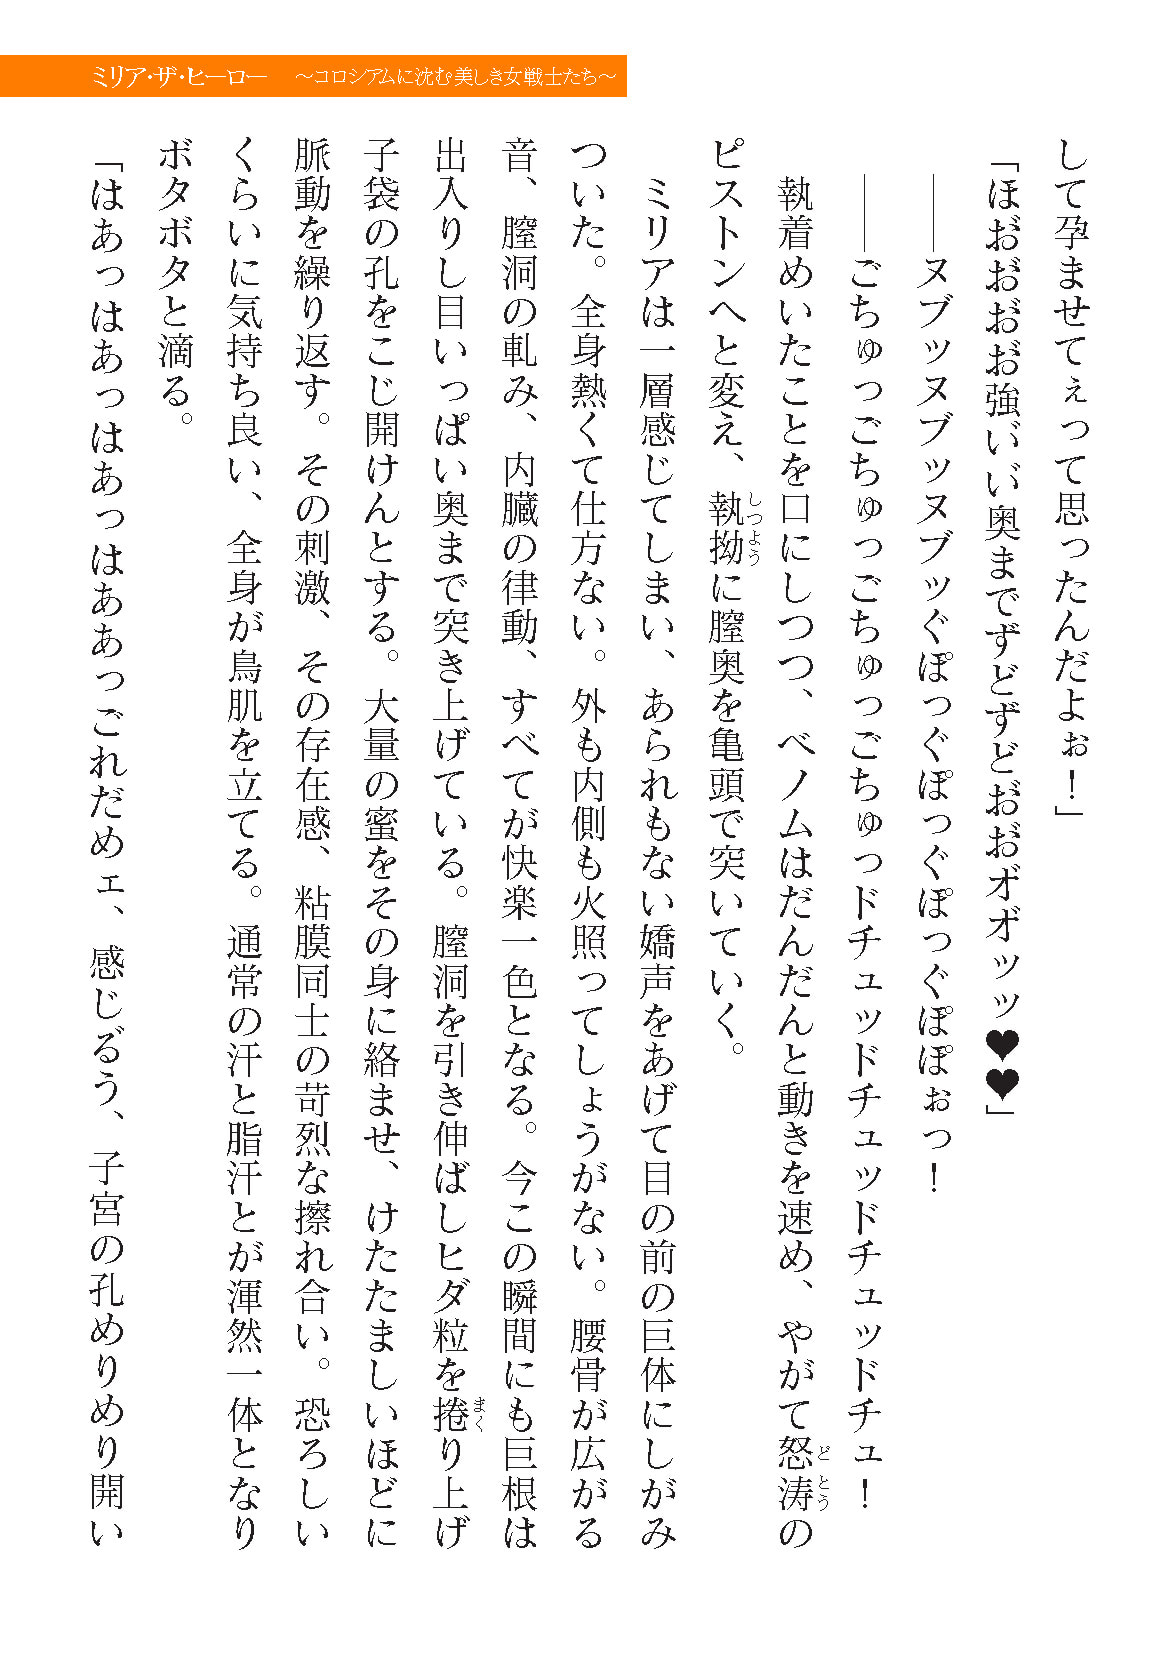 ミリア・ザ・ヒーロー　～コロシアムに沈む美しき女戦士たち～
して孕ませてぇって思ったんだよぉ！」
「ほお゛お゛お゛お゛強い゛い゛奥までずどずどお゛お゛オ゛オ゛ッッ♥♥」
――ヌブッヌブッヌブッぐぽっぐぽっぐぽっぐぽぽぉっ！
――ごちゅっごちゅっごちゅっごちゅっドチュッドチュッドチュッドチュ！
執着めいたことを口にしつつ、べノムはだんだんと動きを速め、やがて怒涛の
ピストンへと変え、執拗に膣奥を亀頭で突いていく。
ミリアは一層感じてしまい、あられもない嬌声をあげて目の前の巨体にしがみ
ついた。全身熱くて仕方ない。外も内側も火照ってしょうがない。腰骨が広がる
音、膣洞の軋み、内臓の律動、すべてが快楽一色となる。今この瞬間にも巨根は
出入りし目いっぱい奥まで突き上げている。膣洞を引き伸ばしヒダ粒を捲り上げ
子袋の孔をこじ開けんとする。大量の蜜をその身に絡ませ、けたたましいほどに
脈動を繰り返す。その刺激、その存在感、粘膜同士の苛烈な擦れ合い。恐ろしい
くらいに気持ち良い、全身が鳥肌を立てる。通常の汗と脂汗とが渾然一体となり
ボタボタと滴る。
「はあっはあっはあっはああっごれだめェ、感じる゛う、子宮の孔めりめり開い